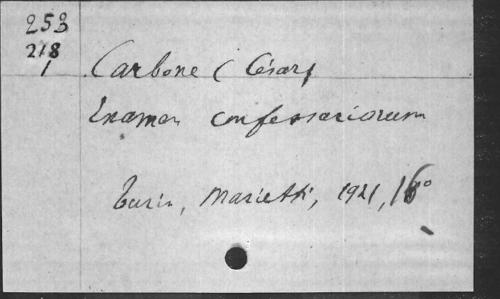 253
218
1
Carbone (César)
Examen confessariorum
Turin, Marietti, 1921, 16°